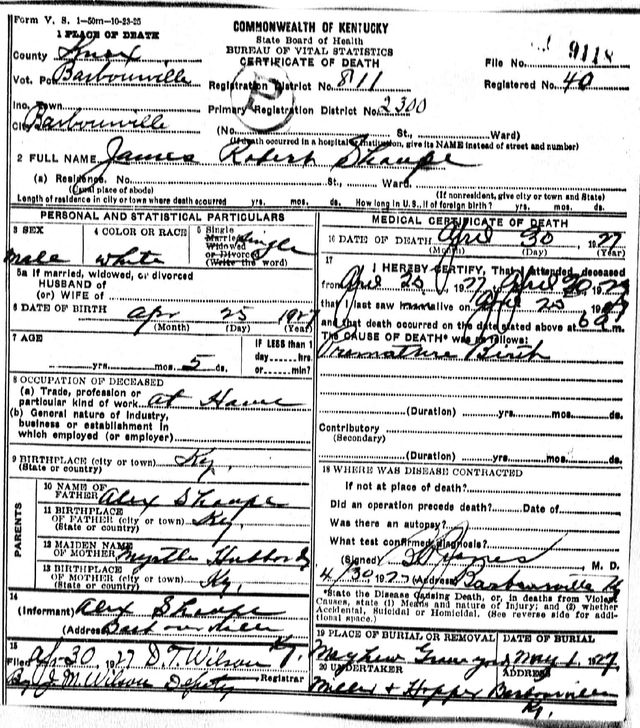 Form V. S. 1-50m-10-23-25
COMMONWEALTH OF KENTUCKY
State Board of Health
BUREAU OF VITAL STATISTICS
CERTIFICATE OF DEATH
1 PLACE OF DEATH
County Knox
File No. 9118
Vot. Pct Barbourville
Registration District No. 811
Registered No. 40
Inc. Town
Primary Registration District No. 2300
City Barbourville
(No. St., Ward)
(If death occurred in a hospital or institution, give its NAME instead of street and number)
2 FULL NAME James Robert Sharpe
(a) Residence. No. St., Ward.
(Usual place of abode) (If nonresident, give city or town and State)
Length of residence in city or town where death occurred yrs. mos. ds. How long in U. S., if of foreign birth? yrs. mos. ds.
PERSONAL AND STATISTICAL PARTICULARS
3 SEX
Male
4 COLOR OR RACE
white
5 Single
Married
Widowed
or Divorced
(Write the word)
single
5a If married, widowed, or divorced
HUSBAND of
(or) WIFE of
6 DATE OF BIRTH Apr 25 1927
(Month) (Day) (Year)
7 AGE
yrs. mos. 5 ds.
IF LESS than 1
day, hrs.
or min?
8 OCCUPATION OF DECEASED
(a) Trade, profession or
particular kind of work At Home
(b) General nature of industry,
business or establishment in
which employed (or employer)
9 BIRTHPLACE (city or town) Ky.
(State or country)
PARENTS
10 NAME OF
FATHER Alex Sharpe
11 BIRTHPLACE
OF FATHER (city or town) Ky.
(State or country)
12 MAIDEN NAME
OF MOTHER Myrtle Hubbard
13 BIRTHPLACE
OF MOTHER (city or town) Ky.
(State or country)
14
(Informant) Alex Sharpe
(Address) Barbourville
Ky.
15
Filed Apr 30, 1927 D. T. Wilson
Registrar
By J M Wilson Deputy
MEDICAL CERTIFICATE OF DEATH
16 DATE OF DEATH April 30, 1927
(Month) (Day) (Year)
17
I HEREBY CERTIFY, That I attended deceased
from April 25, 1927, April 30, 1927
that I last saw him alive on April 25 1927
and that death occurred on the date stated above at 6 a m.
The CAUSE OF DEATH* was as follows:
Premature Birth
(Duration) yrs. mos. ds.
Contributory
(Secondary)
(Duration) yrs. mos. ds.
18 WHERE WAS DISEASE CONTRACTED
If not at place of death?
Did an operation precede death? Date of
Was there an autopsy?
What test confirmed diagnosis?
(Signed) M. D.
4/30 1927 (Address) Barbourville Ky
*State the Disease Causing Death, or, in deaths from Violent
Causes, state (1) Means and nature of Injury; and (2) whether
Accidental, Suicidal or Homicidal. (See reverse side for addi-
tional space.)
19 PLACE OF BURIAL OR REMOVAL
Mayhew Grave yard
DATE OF BURIAL
May 1, 1927
20 UNDERTAKER
Miller & Hopper
ADDRESS
Barbourville
Ky.